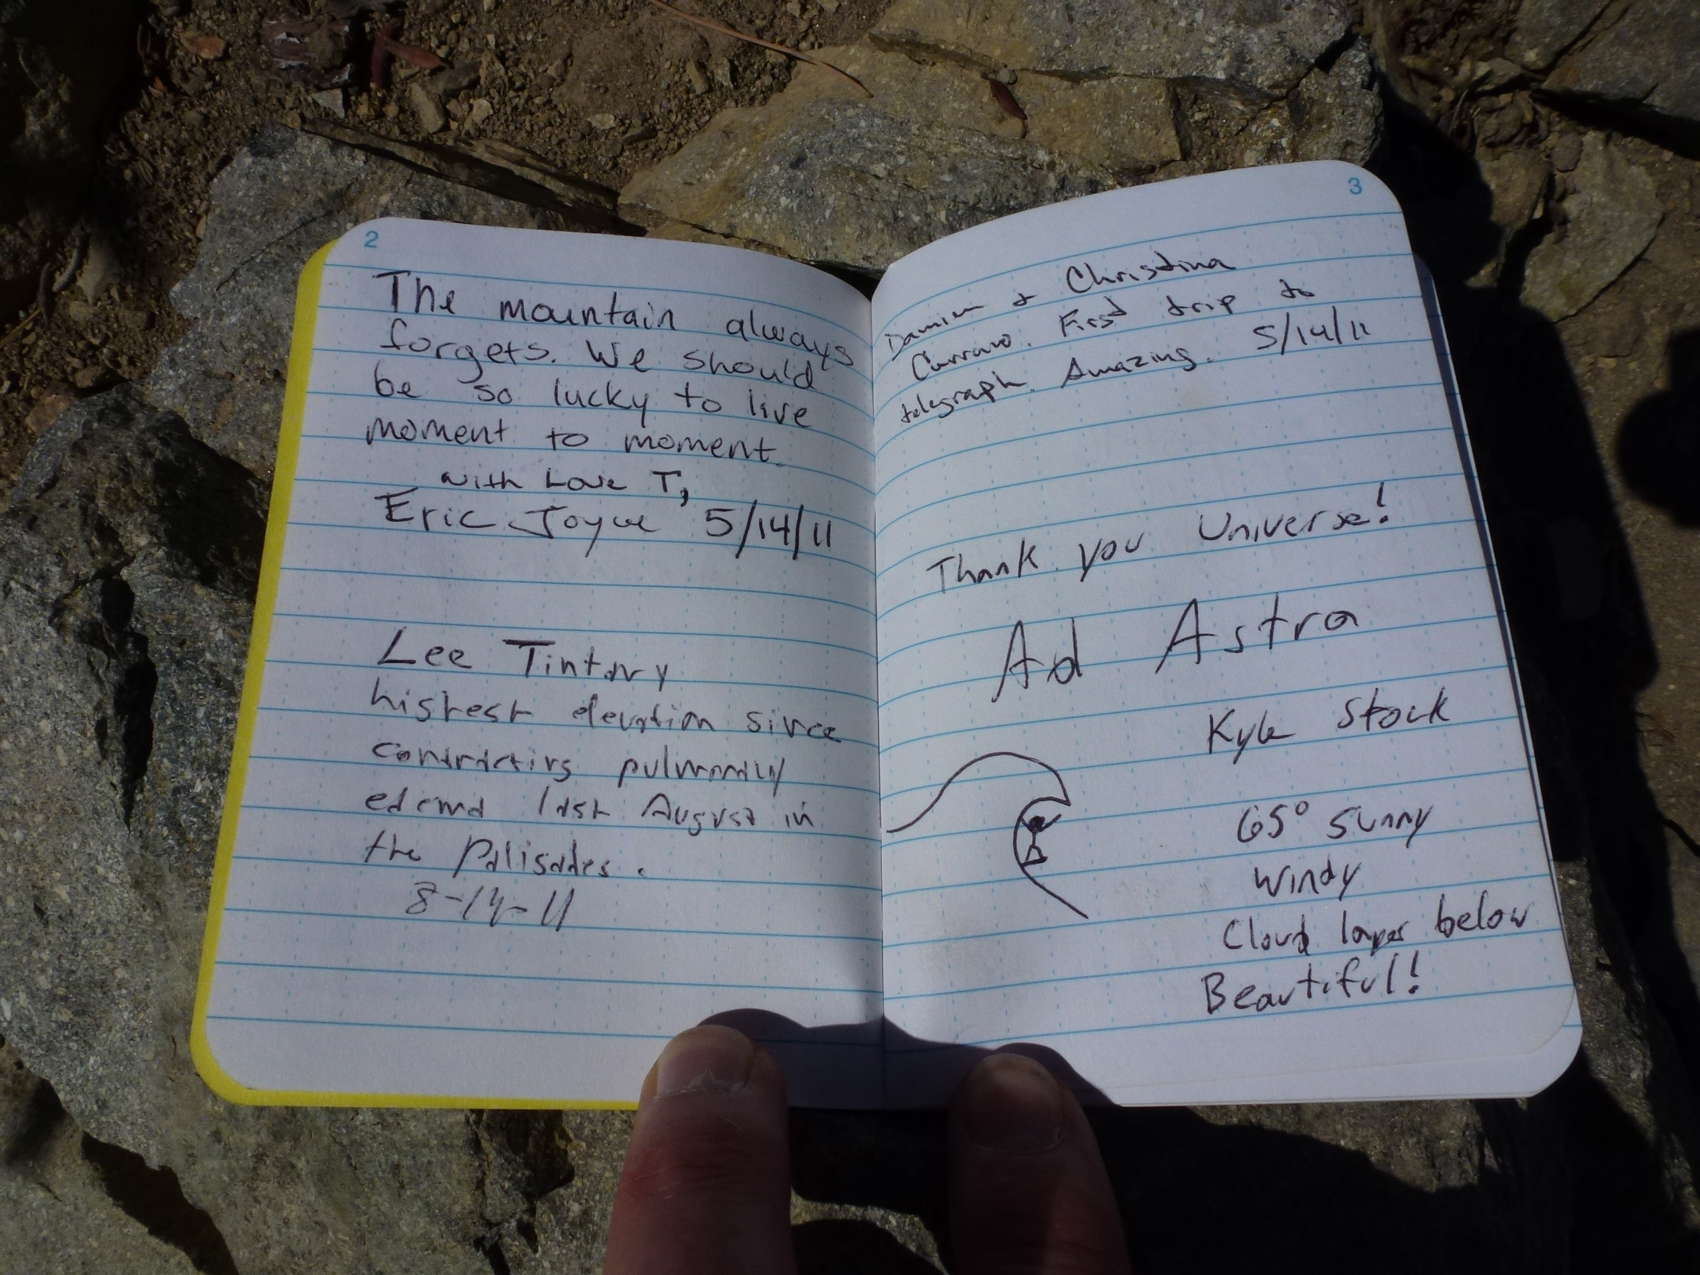 2
The mountain always
forgets. We should
be so lucky to live
moment to moment.
with Love T,
Eric Joyce 5/14/11
Lee
highest elevation since
contracting pulmonary
edema last August in
the Palisades.
8-14-11
3
Damien & Christina
First trip to
telegraph. Amazing. 5/14/11
Thank you Universe!
Ad Astra
Kyle Stock
65° Sunny
Windy
Cloud layer below
Beautiful!